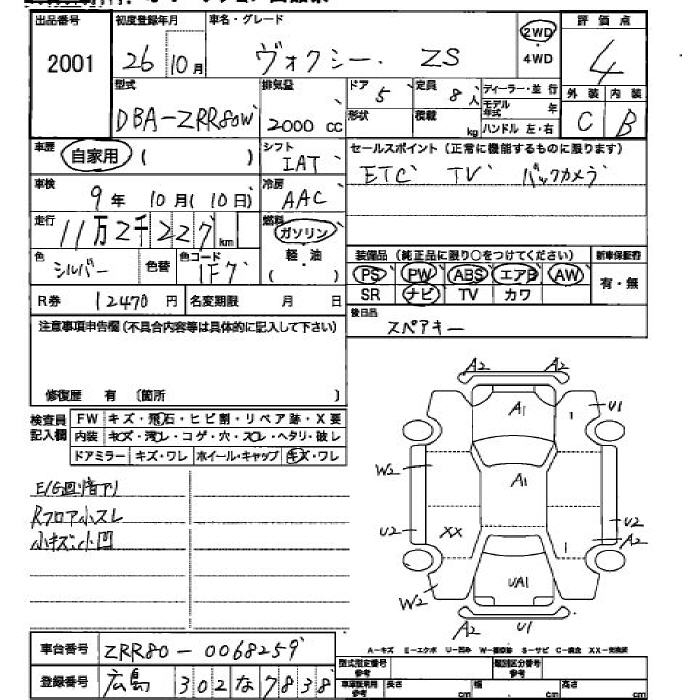 出品番号 初度登録年月 車名・グレード 評価点
2001 26年10月 ヴォクシー ZS 2WD 4WD 4
型式 排気量 ドア 5 定員 8人 ディーラー・並行 外装 内装
DBA-ZRR80W 2000 cc 形状 積載 kg モデル年式 年 C B
ハンドル 左・右
車歴 自家用 ( ) シフト IAT セールスポイント (正常に機能するものに限ります)
ETC TV バックカメラ
車検 9年 10月 (10日) 冷房 AAC
走行 11万2千227km 燃料 ガソリン 軽・油 ( )
色 シルバー 色替 色コード 1F7
装備品 (純正品に限り○をつけてください) 新車保証書
PS PW ABS エアB AW 有・無
SR ナビ TV カワ
R券 12470円 名変期限 月 日
後日品
スペアキー
注意事項申告欄 (不具合内容等は具体的に記入して下さい)
修復歴 有 〔箇所 〕
検査員記入欄 FW キズ・飛石・ヒビ割・リペア跡・X要
内装 キズ・汚レ・コゲ・穴・スレ・ヘタリ・破レ
ドアミラー キズ・ワレ ホイール・キャップ キズ・ワレ
E/G回り音アリ
Rフロア小スレ
小キズ・小凹
A2 A2
A1 1 U1
W2 A1
U2 XX 1 U2
A2
W2 UA1
A2 U1
A-キズ E-エクボ U-凹み W-補修跡 S-サビ C-腐食 XX-交換済
車台番号 ZRR80-0068259
登録番号 広島 302 な 7838
型式指定番号 参考 類別区分番号 参考
車庫証明用 参考 長さ cm 幅 cm 高さ cm